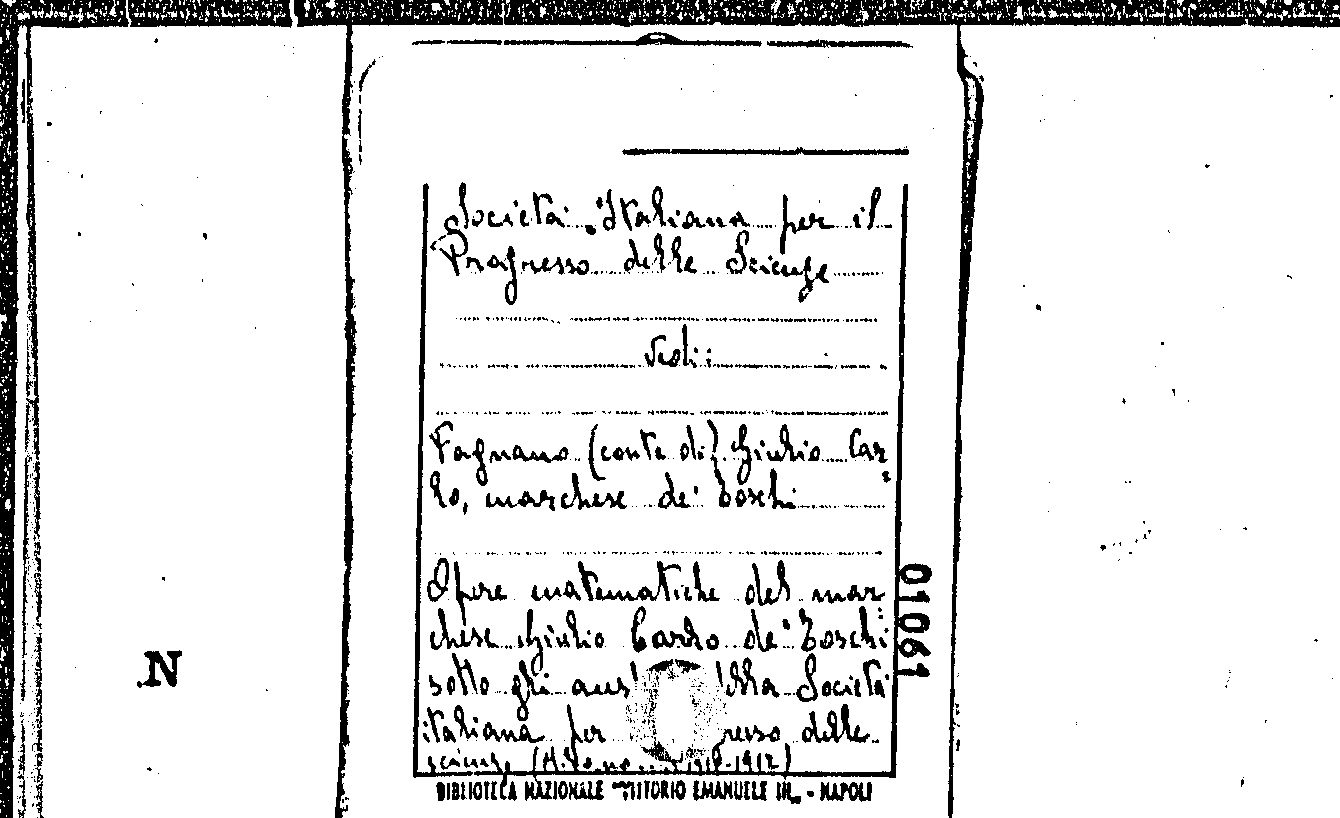 Società Italiana per il
Progresso delle Scienze
Vedi:
Fagnano (conte di) Giulio Car
lo, marchese de' Toschi
Opere matematiche del mar
chese Giulio Carlo de' Toschi
sotto gli della Società
italiana per delle
scienze
01061
N
BIBLIOTECA NAZIONALE "VITTORIO EMANUELE III" - NAPOLI